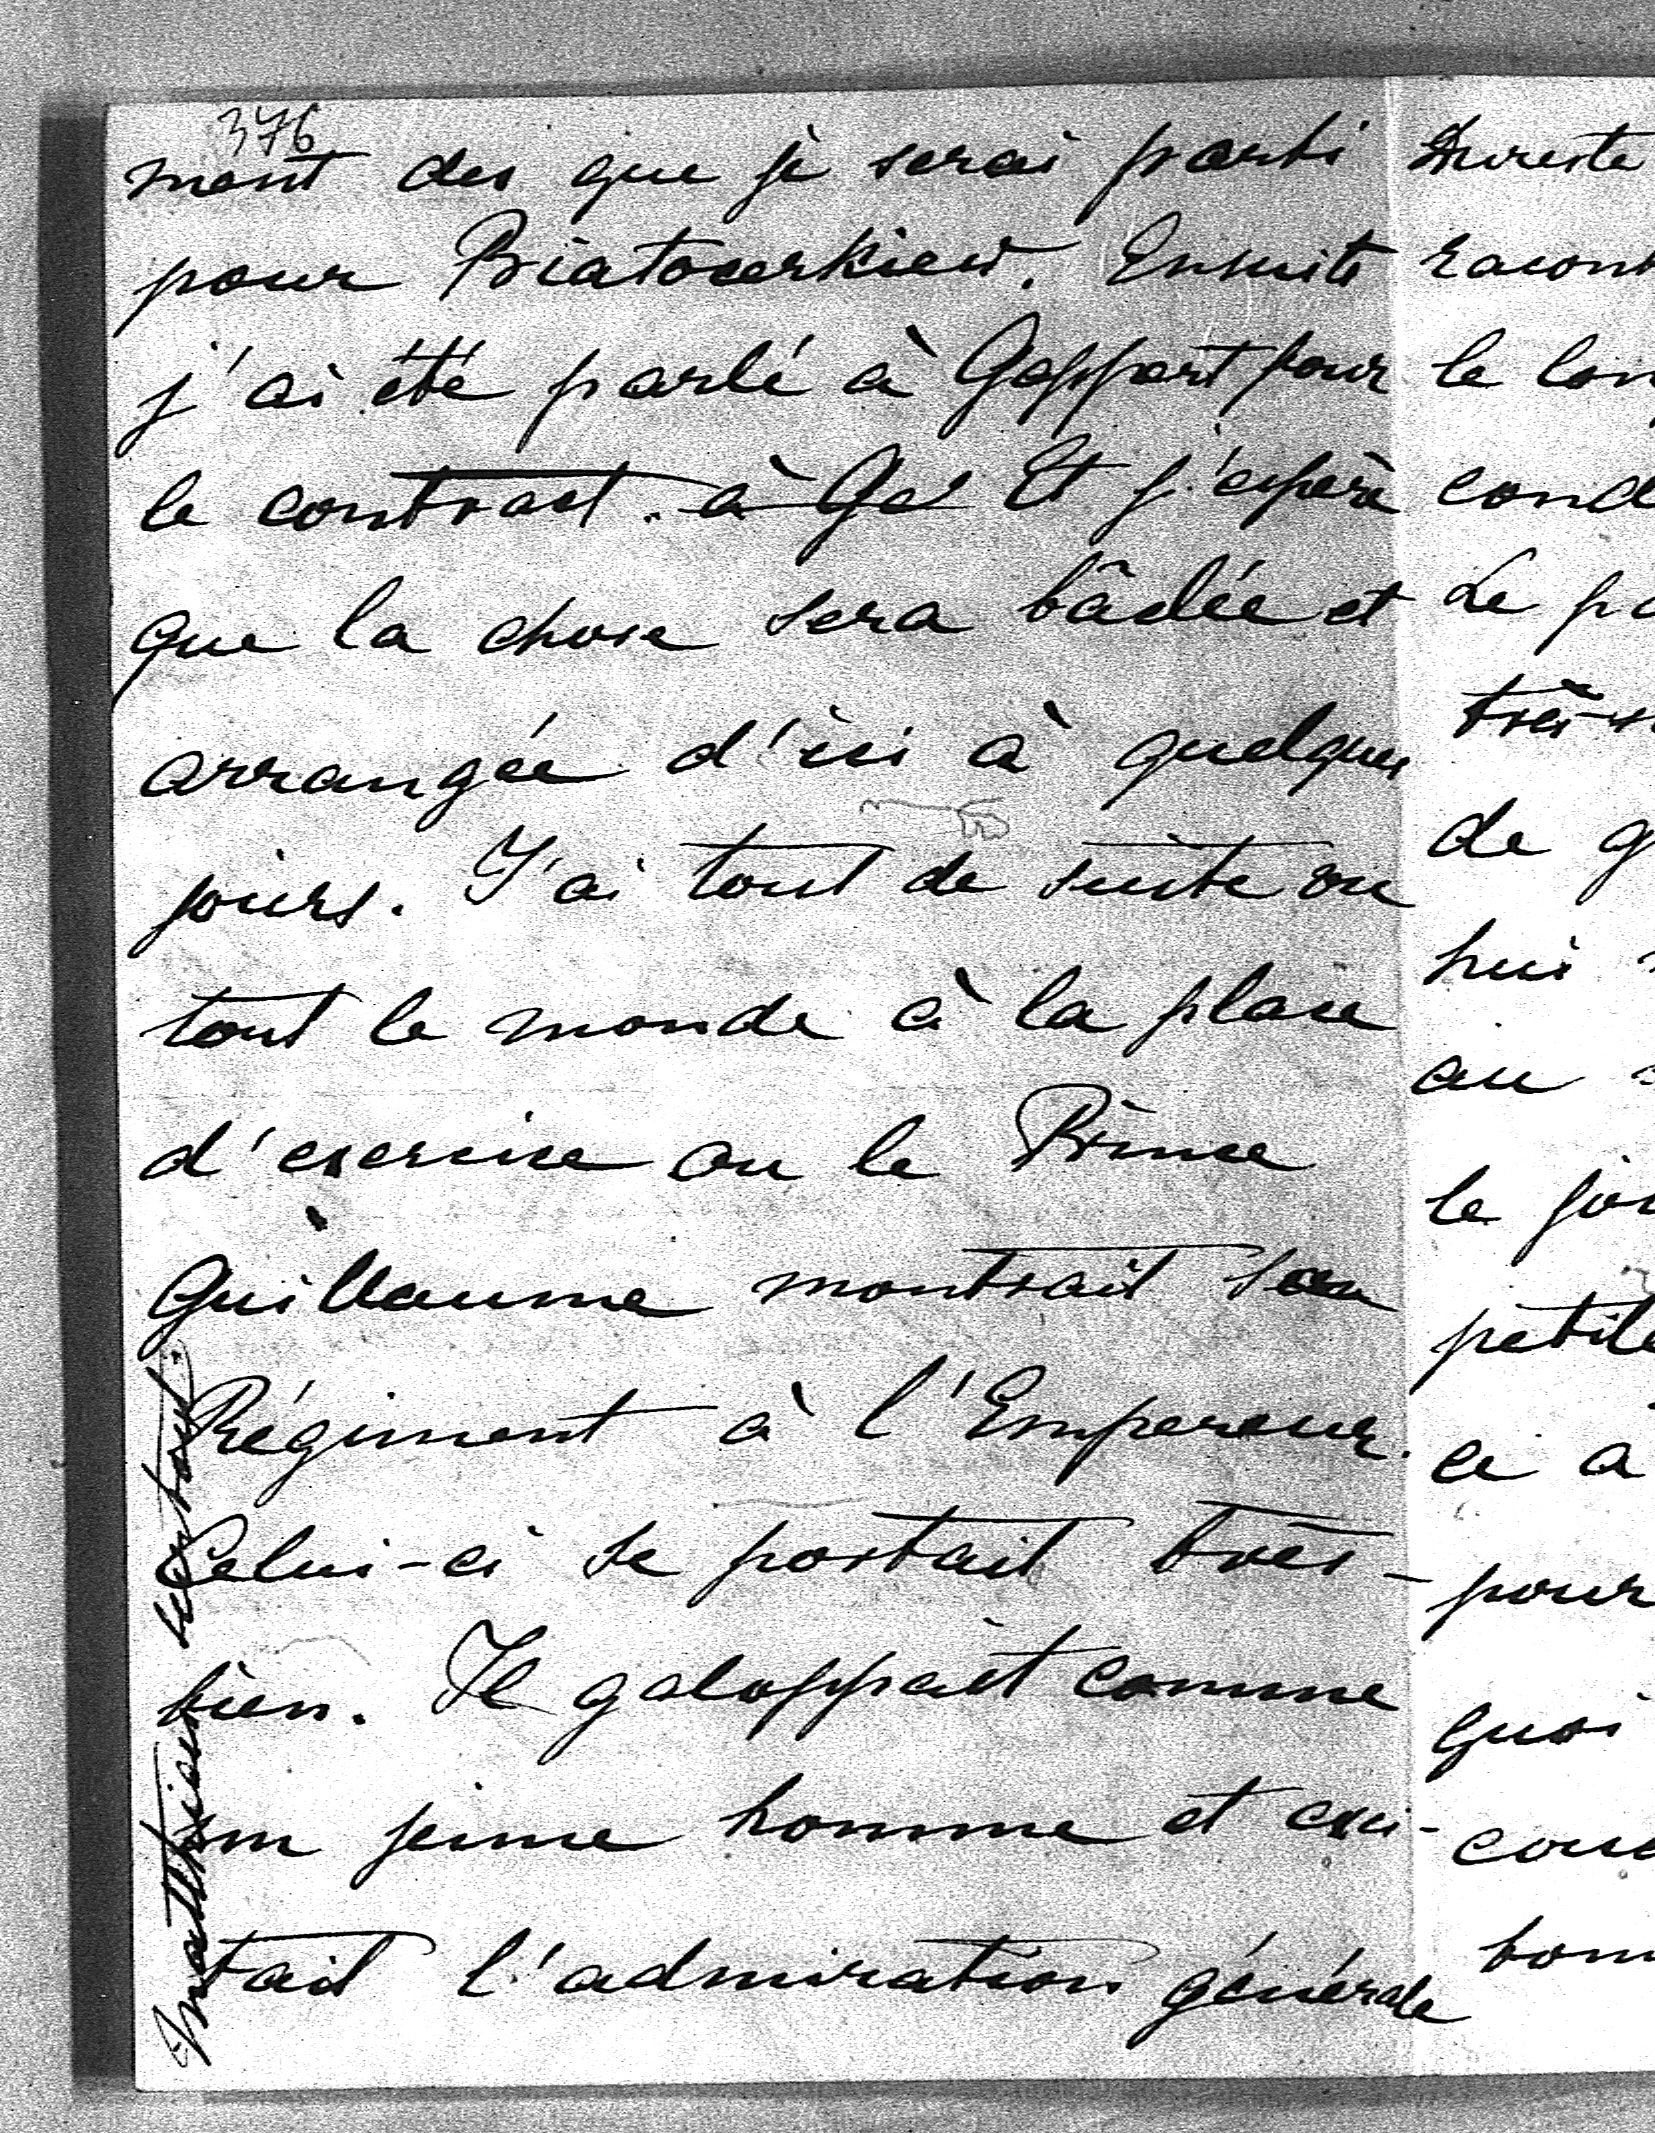 376
ment des que je serai parti
pour Biatocerkiew. Ensuite
j'ai été parlé à Goppart pour
le contract. à Go Et j'espère
que la chose sera bâclée et
arrangée d'ici à quelques
jours. J'ai tout de suite vu
tout le monde à la place
d'exercice ou le Prince
Guillaume montrait son
Régiment à l'Empereur.
Celui-ci se portait très-
bien. Il galoppait comme
un jeune homme et exci-
tait l'admiration générale
Matthieu surtout.
Dureste
racont
le lon
cond
Le pa
très-
de g
hui
au
le jou
petite
ci a
pour
quoi
cou
bon